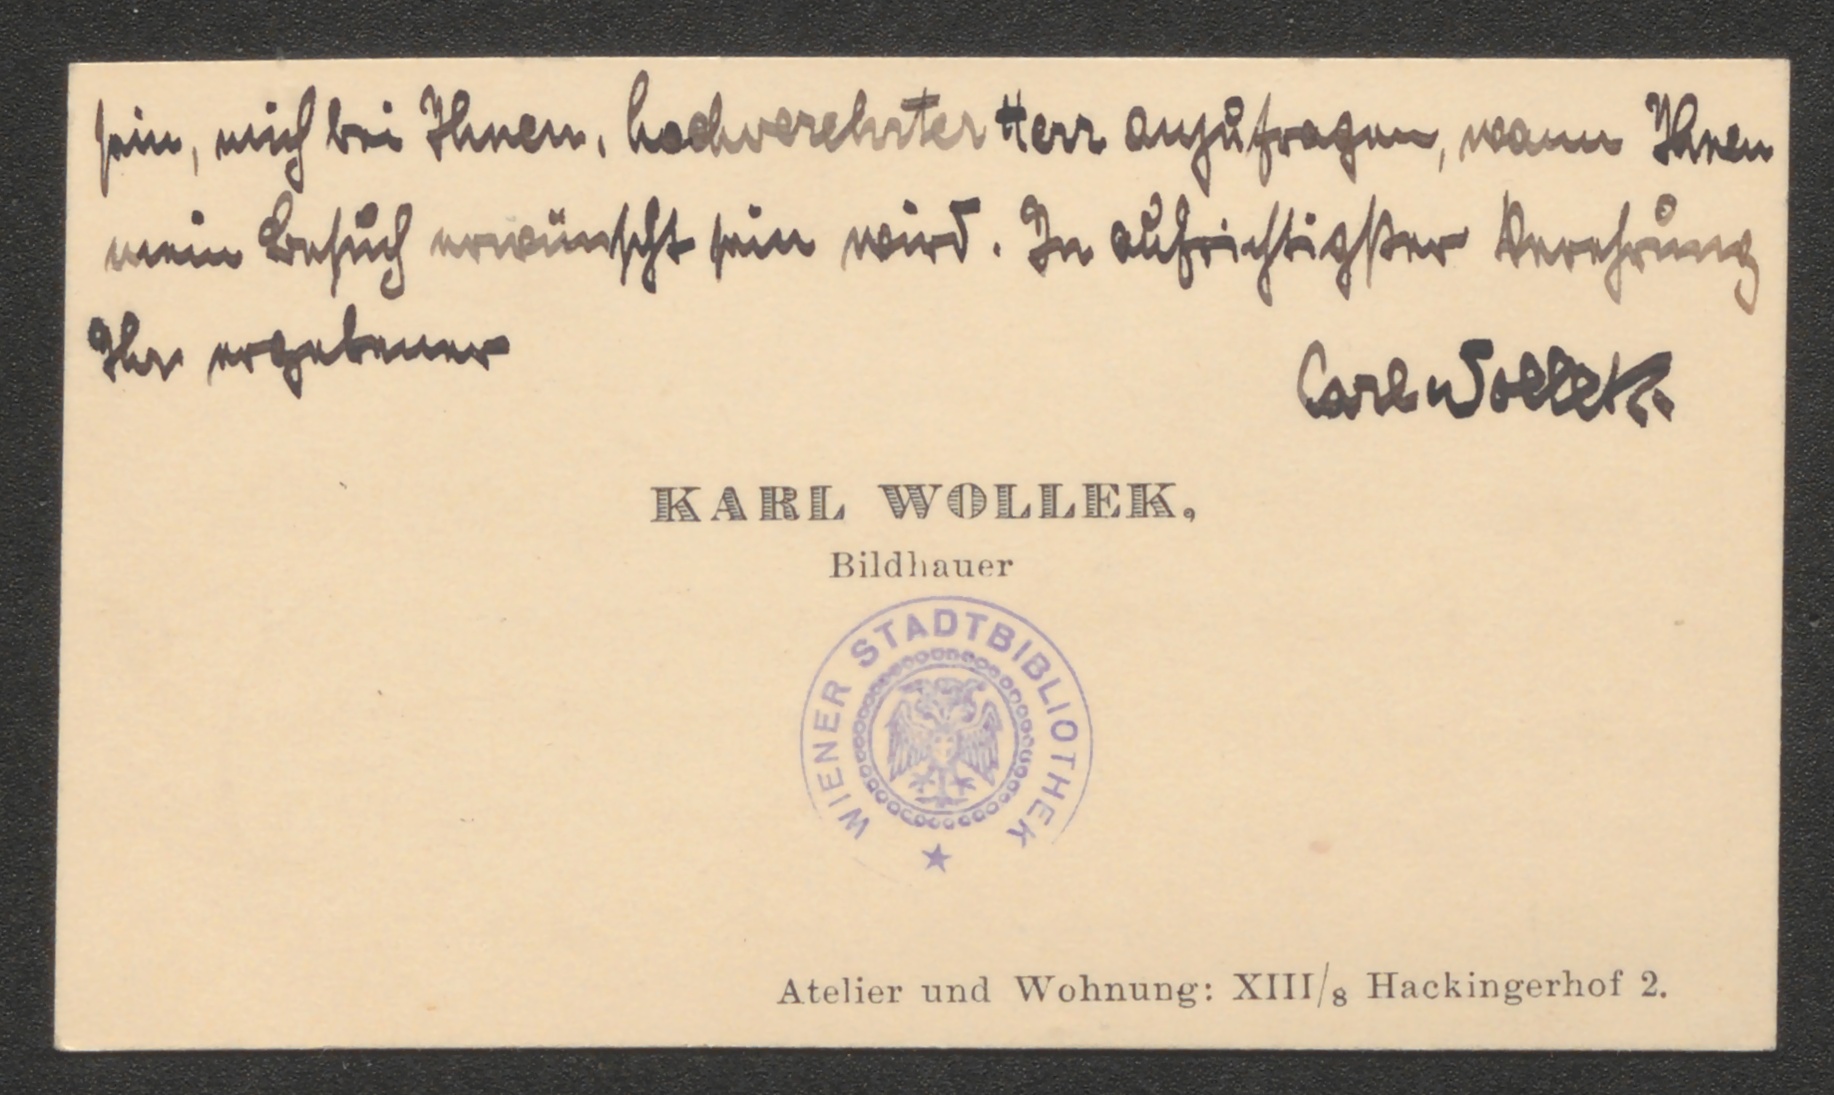 sein, mich bei Ihnen, hochverehrter Herr anzufragen, wann Ihnen
mein Besuch erwünscht sein wird. In aufrichtigster Verehrung
Ihr ergebener
Carl Wollek
KARL WOLLEK,
Bildhauer
WIENER STADTBIBLIOTHEK
Atelier und Wohnung: XIII/8 Hackingerhof 2.